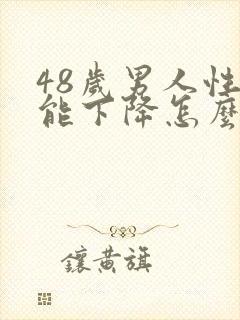 48歲男人性
能下降怎麼
鑲黃旗